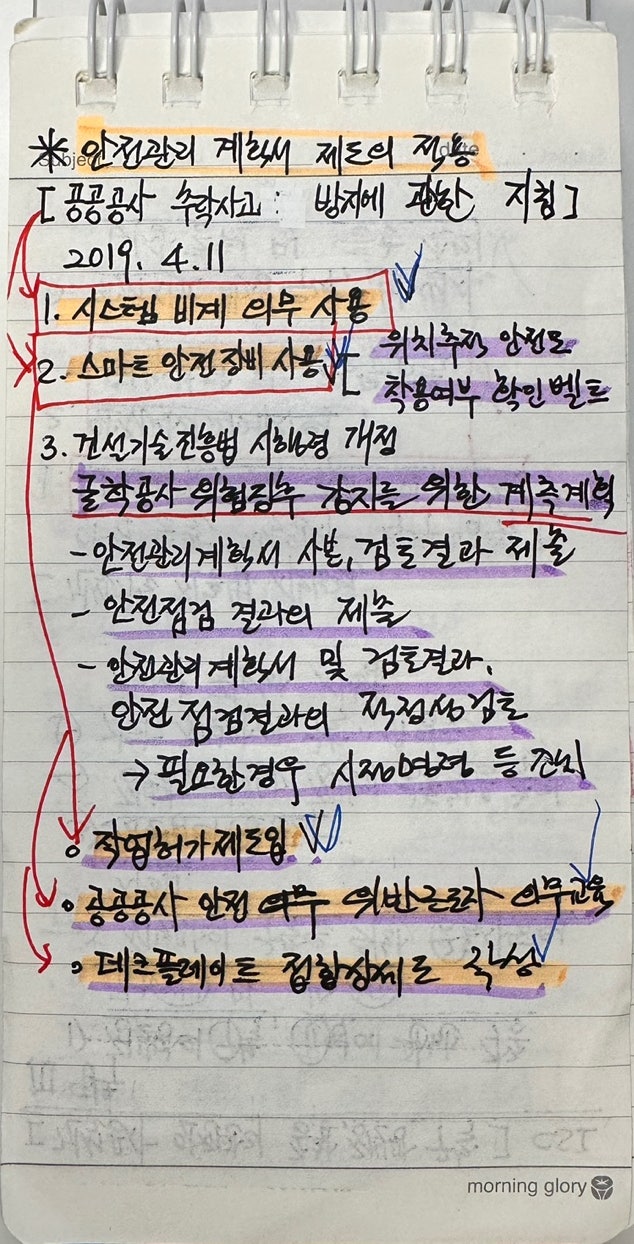 Subject
date
* 안전관리 계획서 제도의 적용
[ 공공공사 추락사고: 방지에 관한 지침 ]
2019. 4. 11
1. 시스템 비계 의무 사용
2. 스마트 안전장비 사용 [ 위치추적 안전모
착용여부 확인벨트
3. 건설기술진흥법 시행령 개정
굴착공사 위험징후 감지를 위한 계측계획
- 안전관리계획서 사본, 검토결과 제출
- 안전점검 결과의 제출
- 안전관리계획서 및 검토결과,
안전점검결과의 적정성검토
→ 필요한경우 시정명령 등 조치
◦ 작업허가제도입
◦ 공공공사 안전 의무 위반근로자 의무교육
◦ 데크플레이트 접합상세도 작성
morning glory